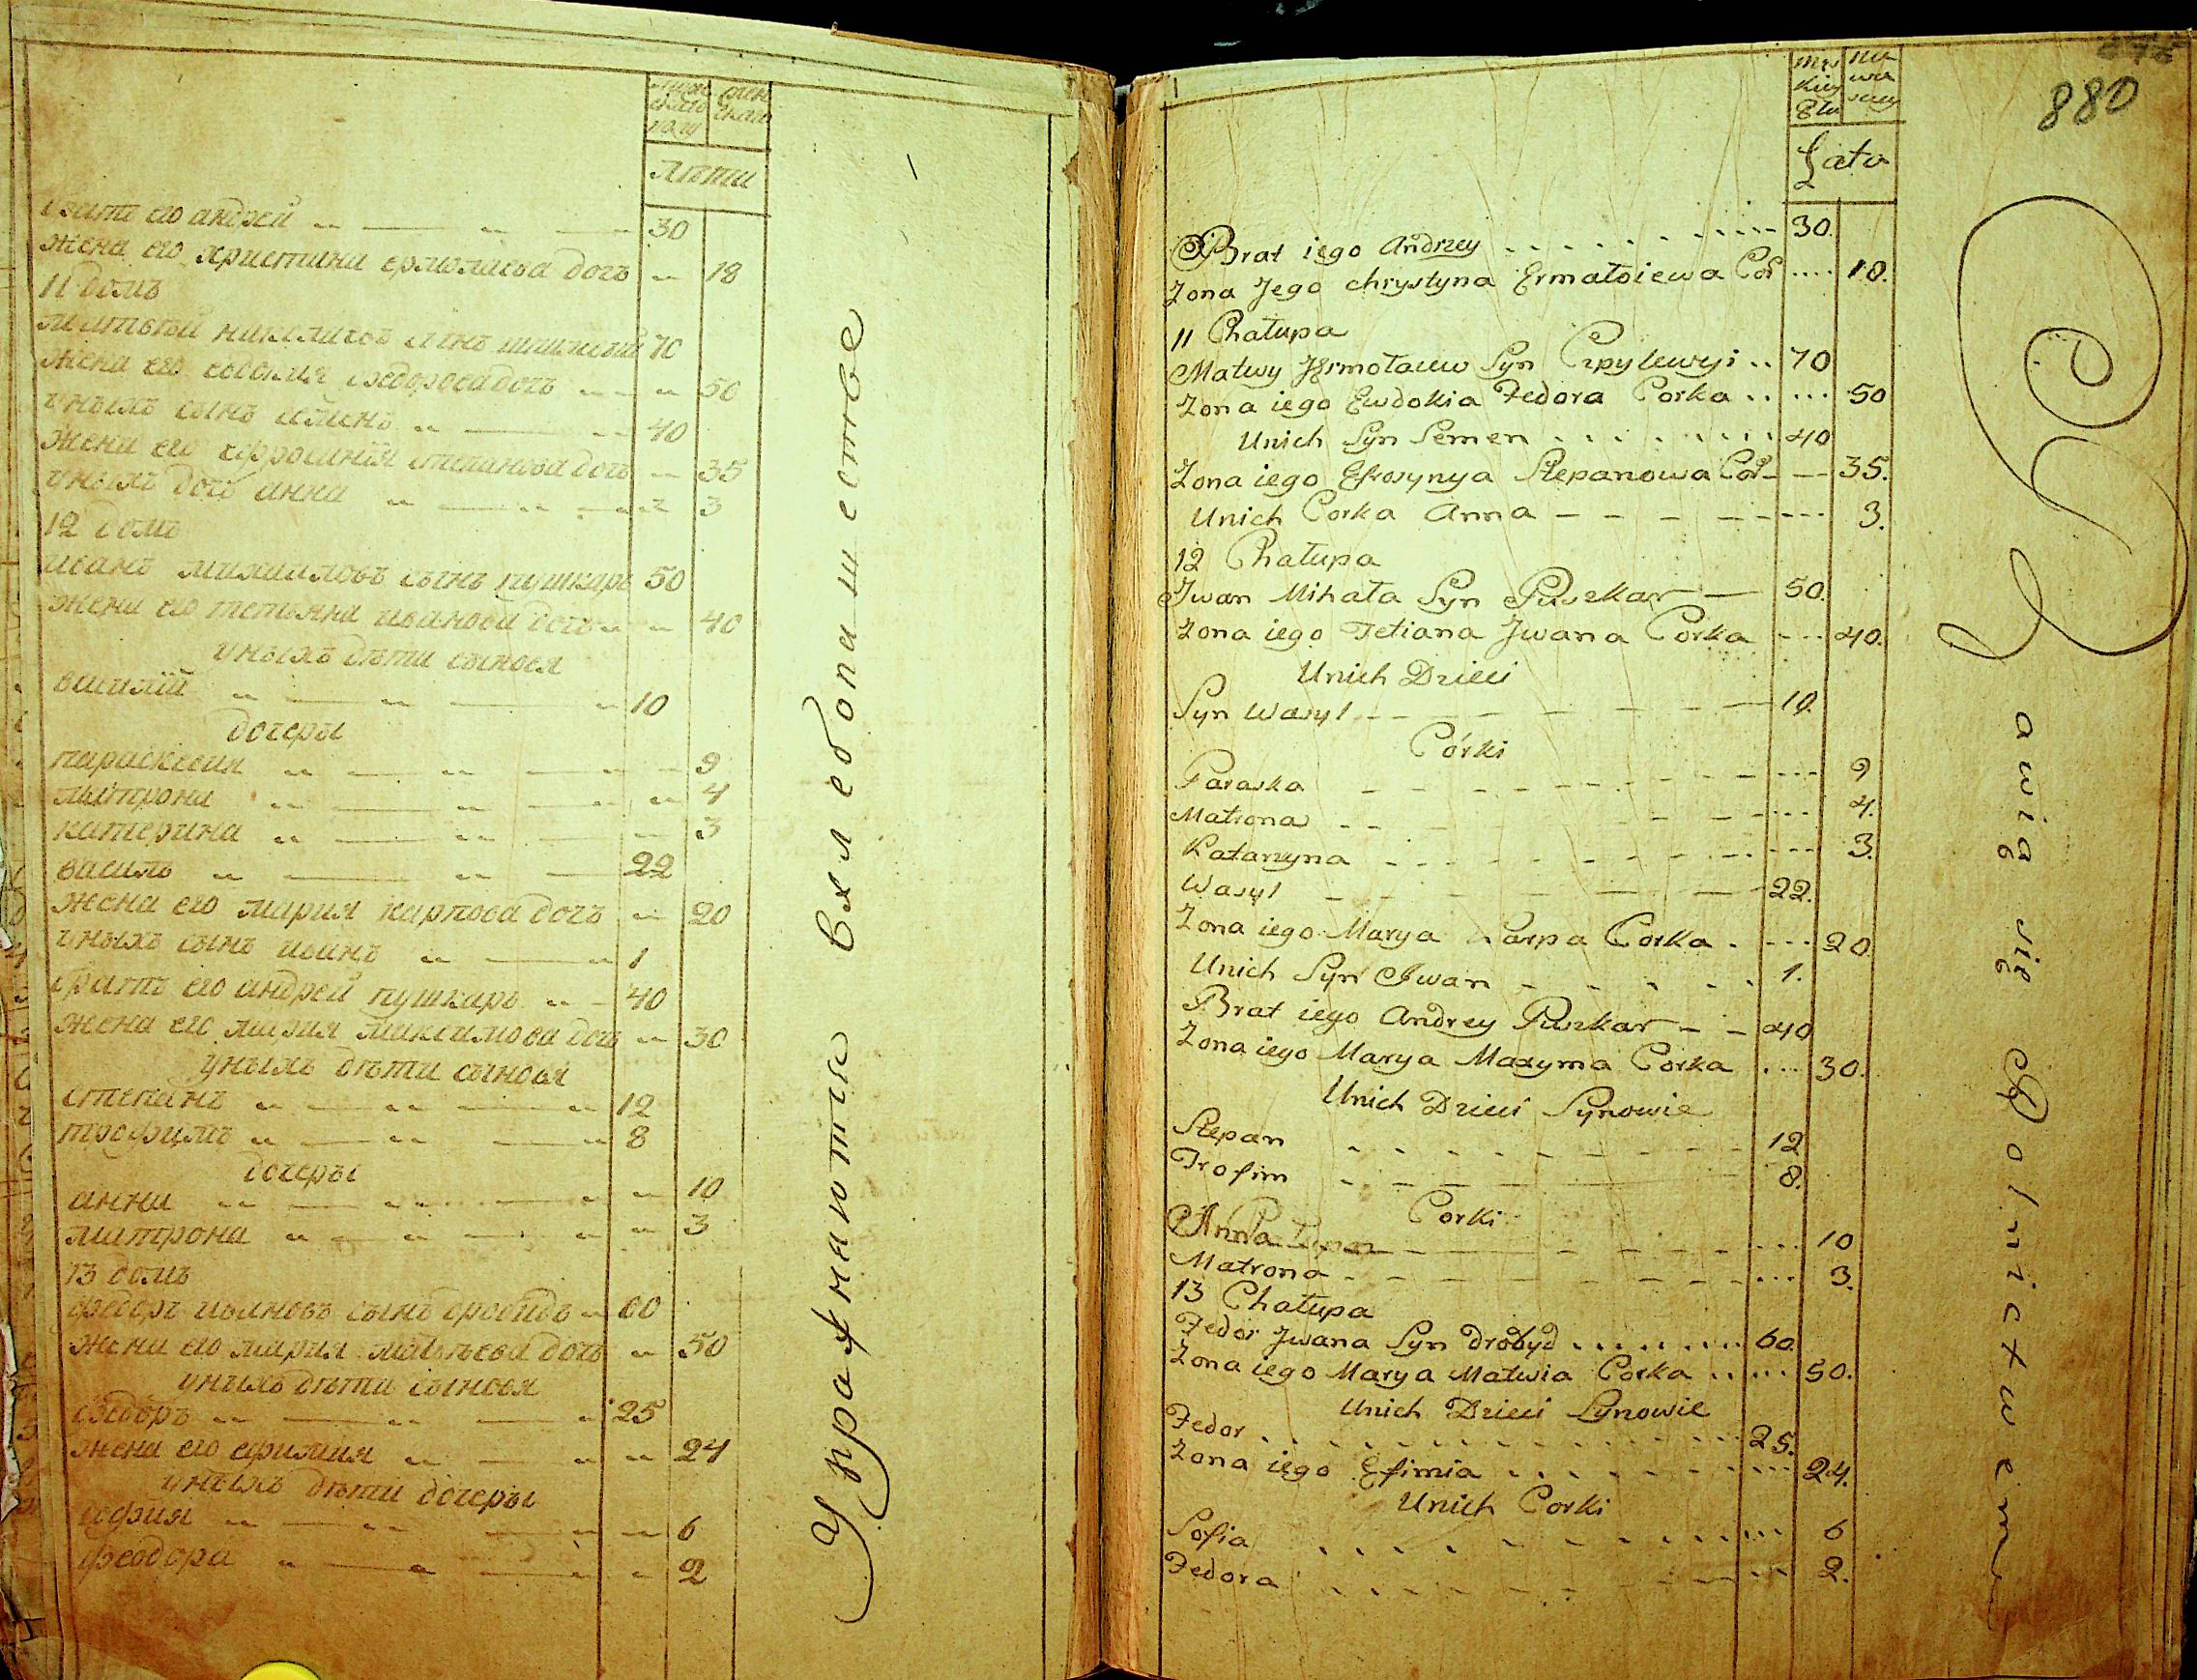 Лѣта
братъ его андрей 30
жена его христина ермолаева дочъ 18
11 домъ
70
жена его евдокия федорова дочъ 50
уныхъ сынъ семенъ 40
жена его ефросиния степанова дочъ 35
уныхъ дочъ анна 3
12 домъ
иванъ михаиловъ сынъ пушкаръ 50
жена его тетьяна иванова дочъ 40
уныхъ дѣти сыновя
василій 10
дочеры
параскевия 9
матрона 4
катерина 3
василъ 22
жена его мария карпова дочъ 20
уныхъ сынъ иванъ 1
братъ его андрей пушкаръ 40
жена его мария максимова дочъ 30
уныхъ дѣти сыновя
степанъ 12
трофимъ 8
дочеры
анна 10
матрона 3
13 домъ
федоръ ивановъ сынъ дробидъ 60
жена его мария матвѣева дочъ 50
уныхъ дѣти сыновя
федоръ 25
жена его ефимия 24
уныхъ дѣти дочеры
софия 6
феодора 2
Упражняются вхлебопашестве
880
Lata
Brat iego Andrzey 30.
Zona Jego chrystyna Ermałoiewa Cor 18.
11 Chałupa
Matwy Syn 70
Zona iego Ewdokia Fedora Corka 50
Unich Syn Semen 40
Zona iego Efrosynya Stepanowa Cor 35.
Unich Corka Anna 3.
12 Chałupa
Jwan Mihała Syn Puszkar 50.
Zona iego Tetiana Jwana Corka 40.
Unich Dzieci
Syn Wasyl 10.
Córki
Paraska 9
Matrona 4.
Katarzyna 3.
Wasyl 22.
Zona iego Marya Karpa Corka 20
Unich Syn Jwan 1.
Brat iego Andrey Puszkar 40
Zona iego Marya Maxyma Corka 30.
Unich Dzieci Synowie
Stepan 12
Trofim 8.
Corki
Anna 10
Matrona 3.
13 Chałupa
Fedor Jwana Syn drobyd 60.
Zona iego Marya Matwia Corka 50.
Unich Dzieci Synowie
Fedor 25.
Zona iego Efimia 24.
Unich Corki
Sofia 6
Fedora 2.
awią się Rolnictwem